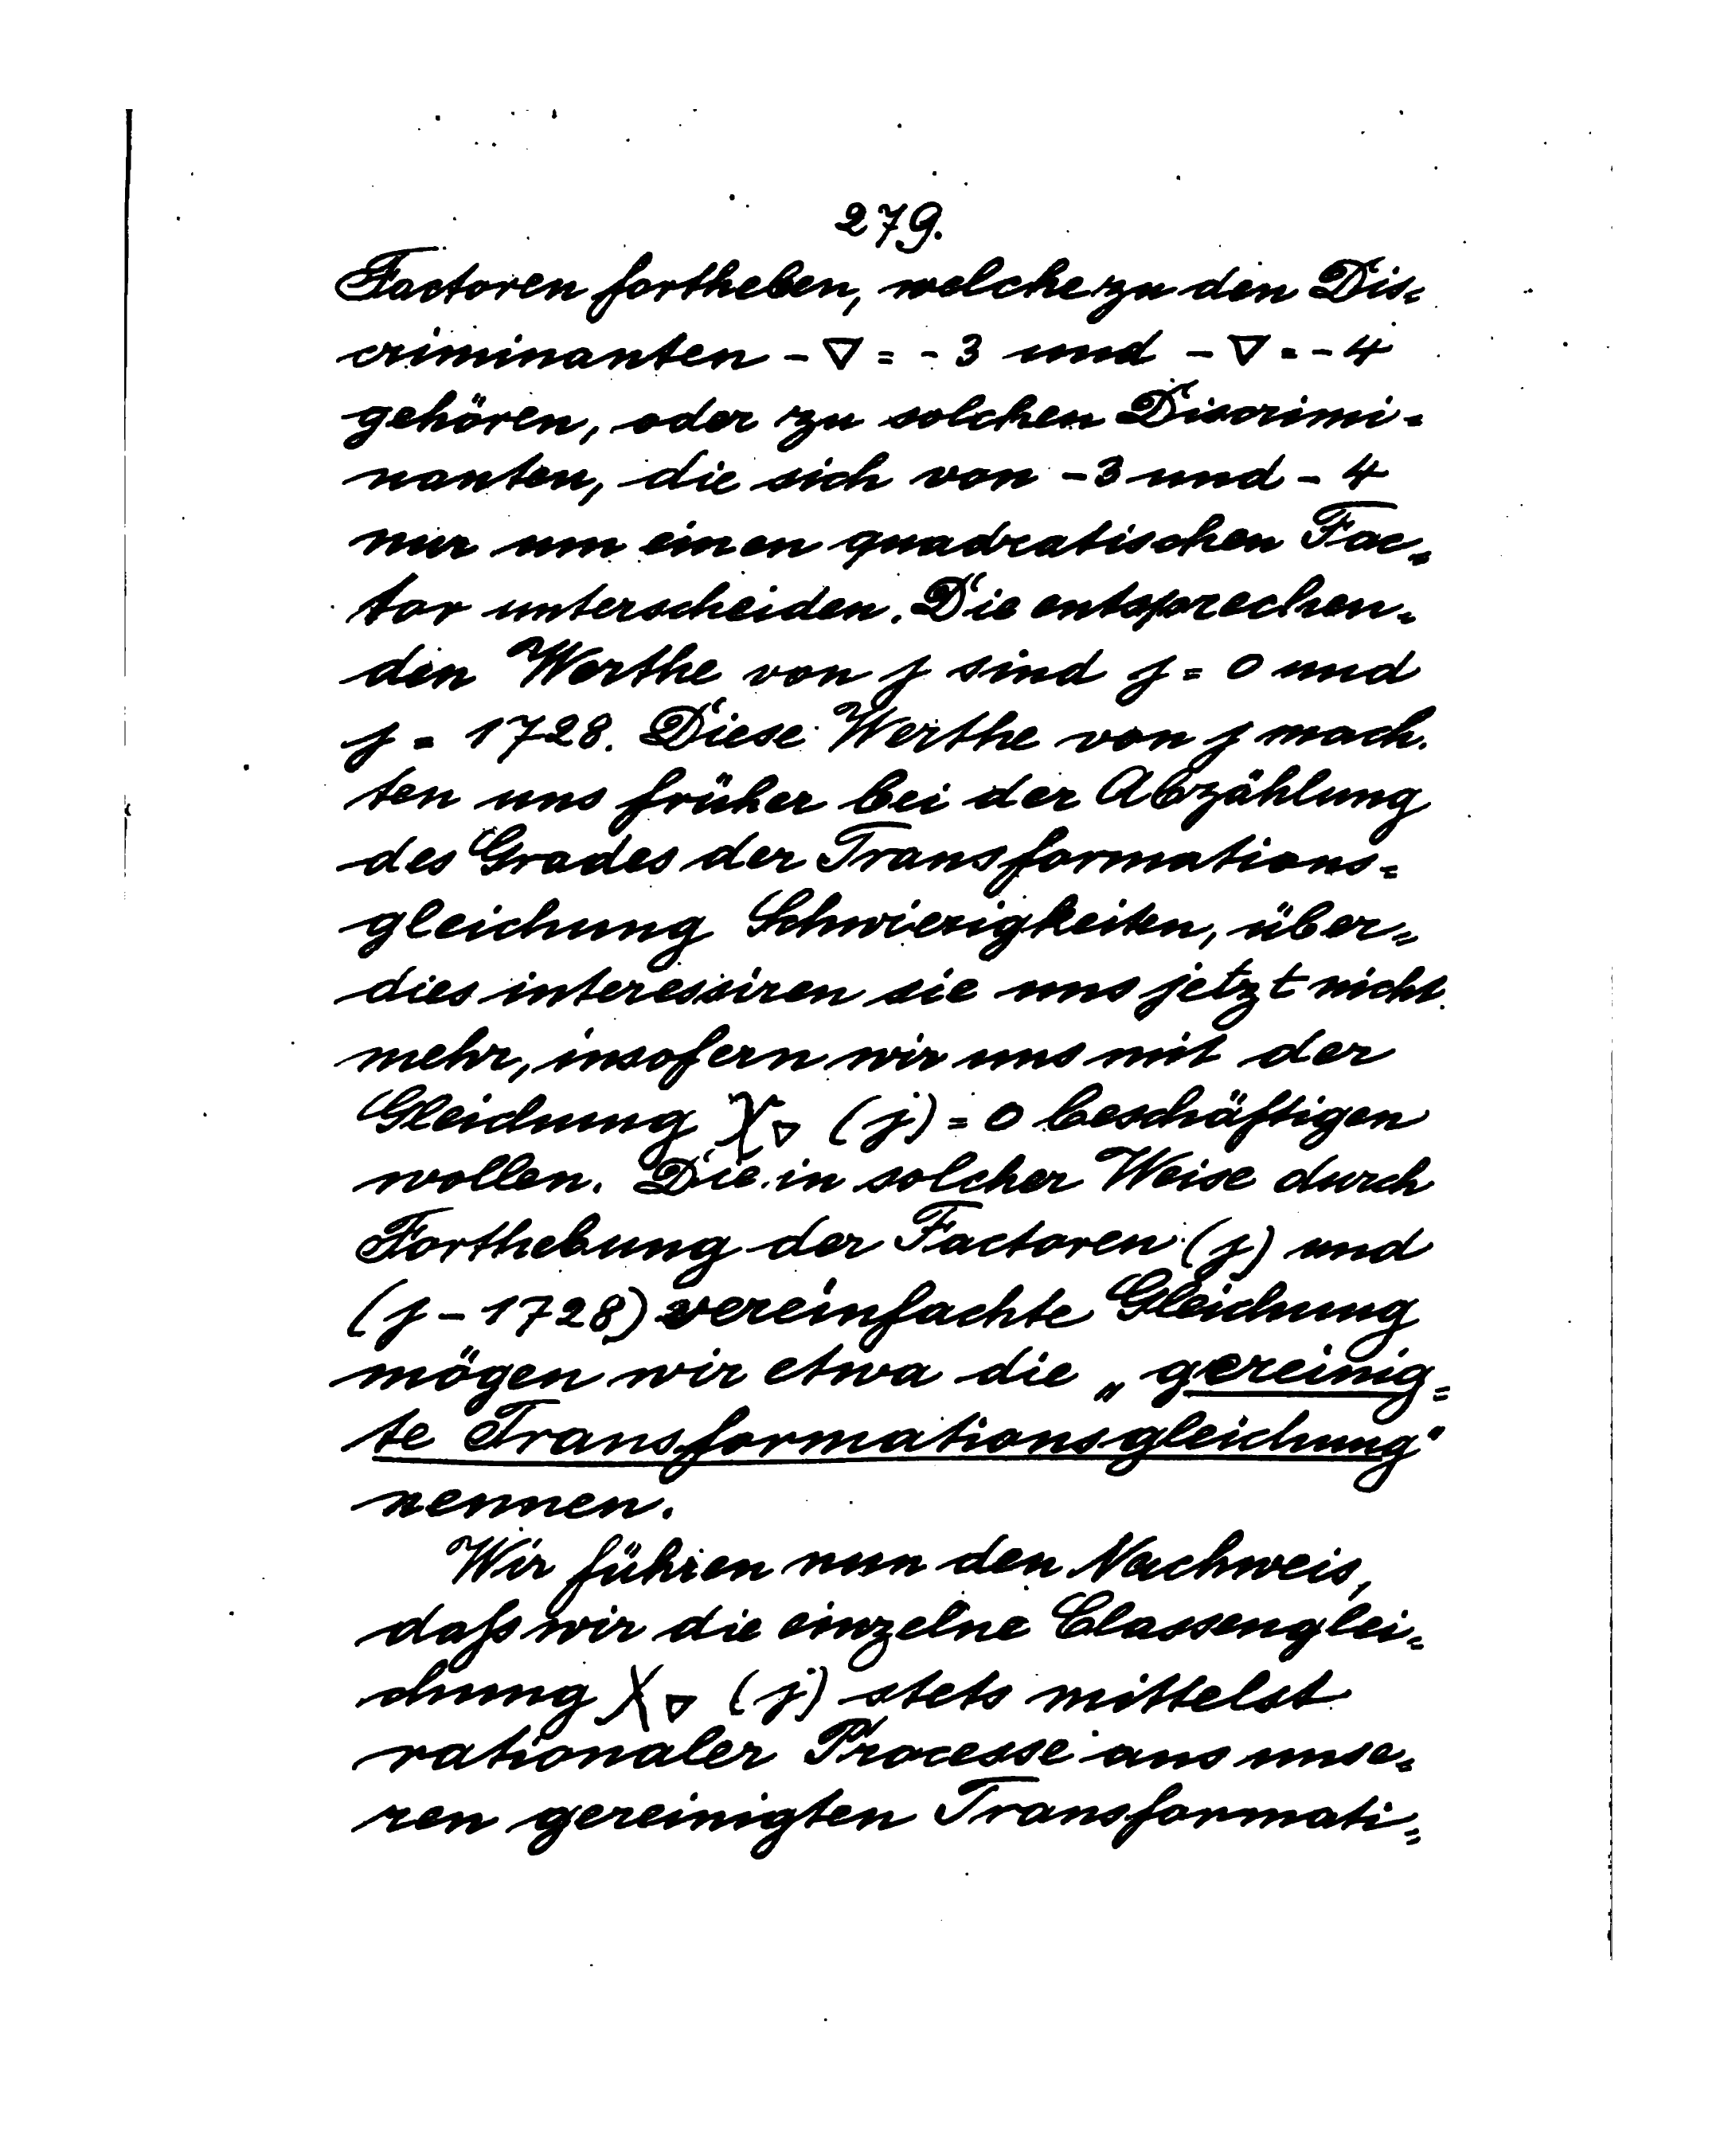 279.
Factoren fortheben, welche zu den Dis=
criminanten -∇ = -3 und -∇ = -4
gehören, oder zu solchen Discrimi=
nanten, die sich von -3 und -4
nur um einen quadratischen Fac=
tor unterscheiden. Die entsprechen=
den Werthe von j sind j = 0 und
j = 1728. Diese Werthe von j mach=
ten uns früher bei der Abzählung
des Grades der Transformations=
gleichung Schwierigkeiten, über=
dies interessiren sie uns jetzt nicht
mehr, insofern wir uns mit der
Gleichung χ∇ (j) = 0 beschäftigen
wollen. Die in solcher Weise durch
Forthebung der Factoren (j) und
(j - 1728) vereinfachte Gleichung
mögen wir etwa die „gereinig=
te Transformationsgleichung"
nennen.
Wir führen nun den Nachweis,
daſs wir die einzelne Classenglei=
chung χ∇ (j) stets mittelst
rationaler Processe aus unse=
ren gereinigten Transformati=